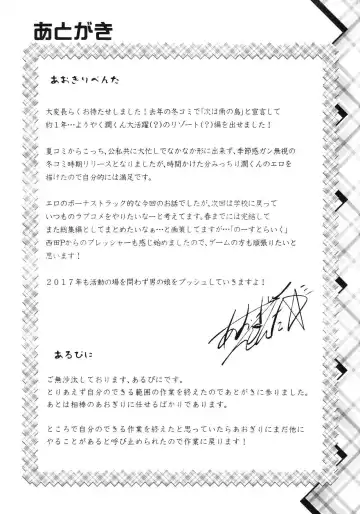 あとがき
あおきりぺんた
大変長らくお待たせしました！去年の冬コミで「次は南の島」と宣言して
約１年…ようやく潤くん大活躍(？)のリゾート(？)編を出せました！
夏コミからこっち、公私共に大忙しでなかなか形に出来ず、季節感ガン無視の
冬コミ時期リリースとなりましたが、時間かけた分みっちり潤くんのエロを
描けたので自分的には満足です。
エロのボーナストラック的な今回のお話でしたが、次回は学校に戻って
いつものラブコメをやりたいなーと考えてます。春までには完結して
また総集編としてまとめたいなぁ…と画策してますが…「のーすとらいく」
西田Pからのプレッシャーも感じ始めましたので、ゲームの方も頑張りたいと
思います！
２０１７年も活動の場を問わず男の娘をプッシュしていきますよ！
あろぴに
ご無沙汰しております、あるぴにです。
とりあえず自分のできる範囲の作業を終えたのであとがきに参りました。
あとは相棒のあおぎりに任せるばかりであります。
ところで自分のできる作業を終えたと思っていたらあおぎりにまだ他に
やることがあると呼び止められたので作業に戻ります！